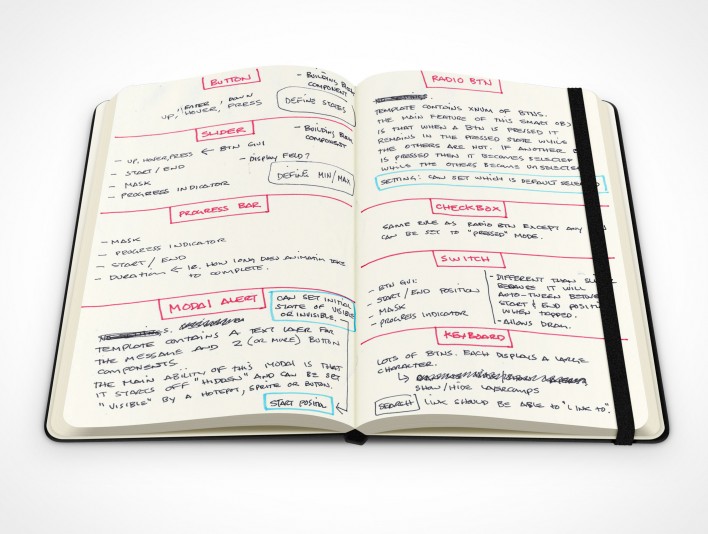 BUTTON
- BUILDING BLOCK
COMPONENT
"ENTER" DOWN
UP, HOVER, PRESS
DEFINE STATES
SLIDER
- BUILDING BLOCK
COMPONENT
- UP, HOVER, PRESS ← BTN GUI
- DISPLAY FIELD?
- START/END
- MASK
DEFINE MIN/MAX
- PROGRESS INDICATOR
PROGRESS BAR
- MASK
- PROGRESS INDICATOR
- START/END
- DURATION ← IE. HOW LONG DOES ANIMATION TAKE
TO COMPLETE.
MODAL ALERT
CAN SET INITIAL
STATE OF VISIBLE
OR INVISIBLE.
TEMPLATE CONTAINS A TEXT LAYER FOR
THE MESSAGE AND 2 (OR MORE) BUTTON
COMPONENTS.
THE MAIN ABILITY OF THIS MODAL IS THAT
IT STARTS OFF "HIDDEN" AND CAN BE SET
"VISIBLE" BY A HOTSPOT, SPRITE OR BUTTON.
START POSITION
RADIO BTN
NO SETTINGS
TEMPLATE CONTAINS XNUM OF BTNS.
THE MAIN FEATURE OF THIS SMART OBJ
IS THAT WHEN A BTN IS PRESSED IT
REMAINS IN THE PRESSED STATE WHILE
THE OTHERS ARE NOT. IF ANOTHER B
IS PRESSED THEN IT BECOMES SELECTED
WHILE THE OTHERS BECOME UNSELECTED
SETTING: CAN SET WHICH IS DEFAULT SELECTED
CHECKBOX
SAME RULE AS RADIO BTN EXCEPT ANY
CAN BE SET TO "PRESSED" MODE.
SWITCH
- BTN GUI
- START/END POSITION
- MASK
- PROGRESS INDICATOR
- DIFFERENT THAN
BECAUSE IT WILL
AUTO-TWEEN BETWEEN
START & END POSITION
WHEN TAPPED.
- ALLOWS DRAW.
KEYBOARD
LOTS OF BTNS. EACH DISPLAYS A LARGE
CHARACTER.
SHOW/HIDE LAYERCOMPS
SEARCH LINK SHOULD BE ABLE TO "LINK TO".